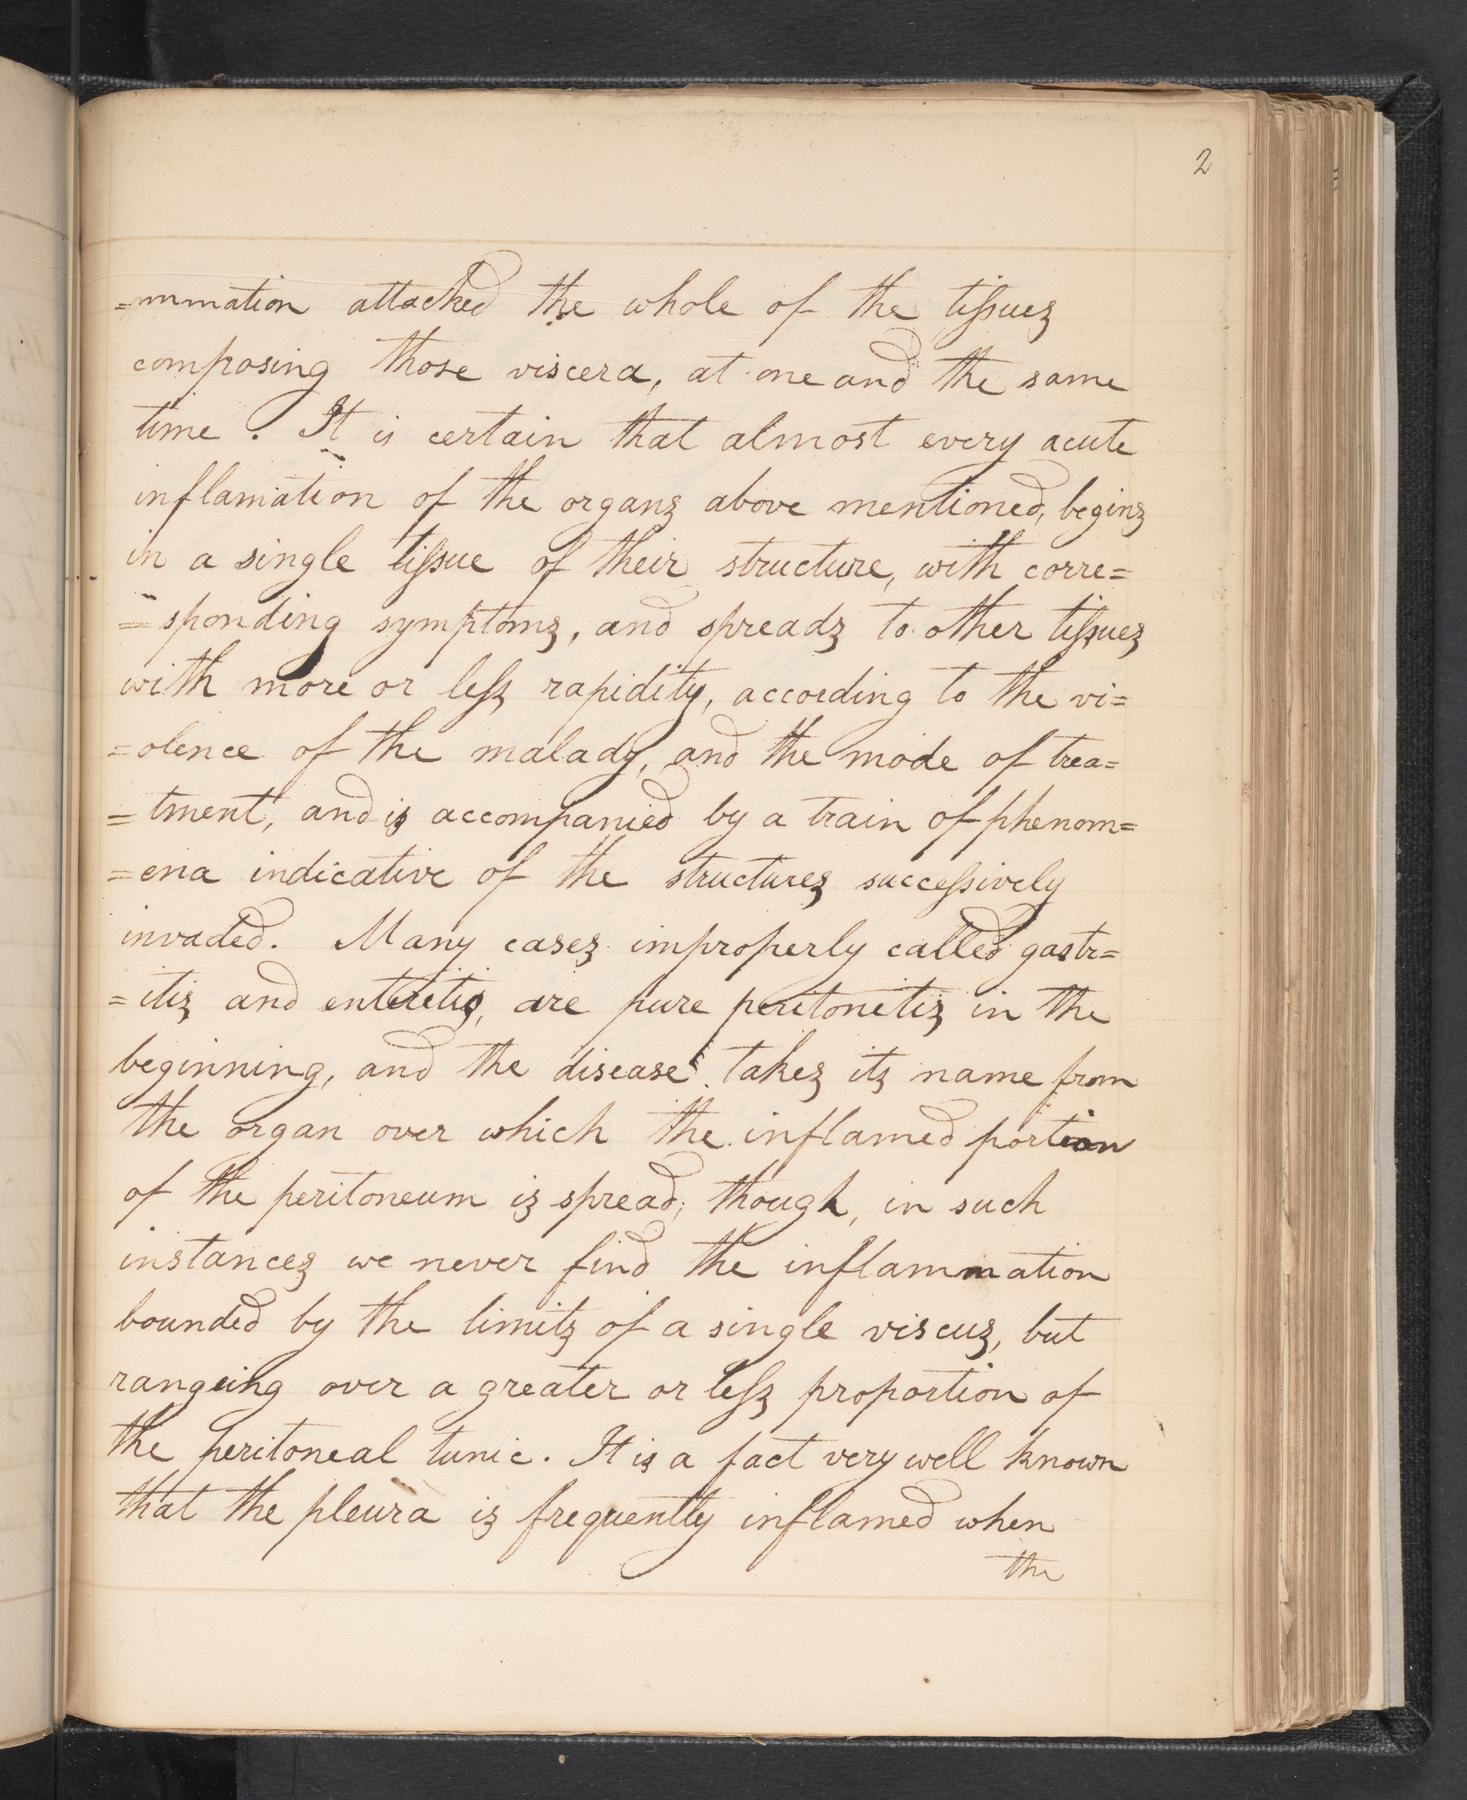 2
=mmation attached the whole of the tissues
composing those viscera, at one and the same
time. It is certain that almost every acute
inflamation of the organs above mentioned, begins
in a single tissue of their structure, with corre=
=sponding symptoms, and spreads to other tissues
with more or less rapidity, according to the vi=
=olence of the malady, and the mode of trea=
=tment, and is accompanied by a train of phenom=
=ena indicative of the structures successively
invaded. Many cases improperly called gastr=
=itis and enteritis, are pure peritonitis in the
beginning, and the disease takes its name from
the organ over which the inflamed portion
of the peritoneum is spread; though, in such
instances we never find the inflammation
bounded by the limits of a single viscus, but
rangeing over a greater or less proportion of
the peritoneal tunic. It is a fact very well known
that the pleura is frequently inflamed when
the